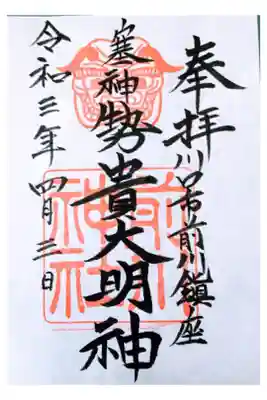 奉拝
川口市前川鎮座
塞神勢貴大明神
令和三年四月三日
前川
神社